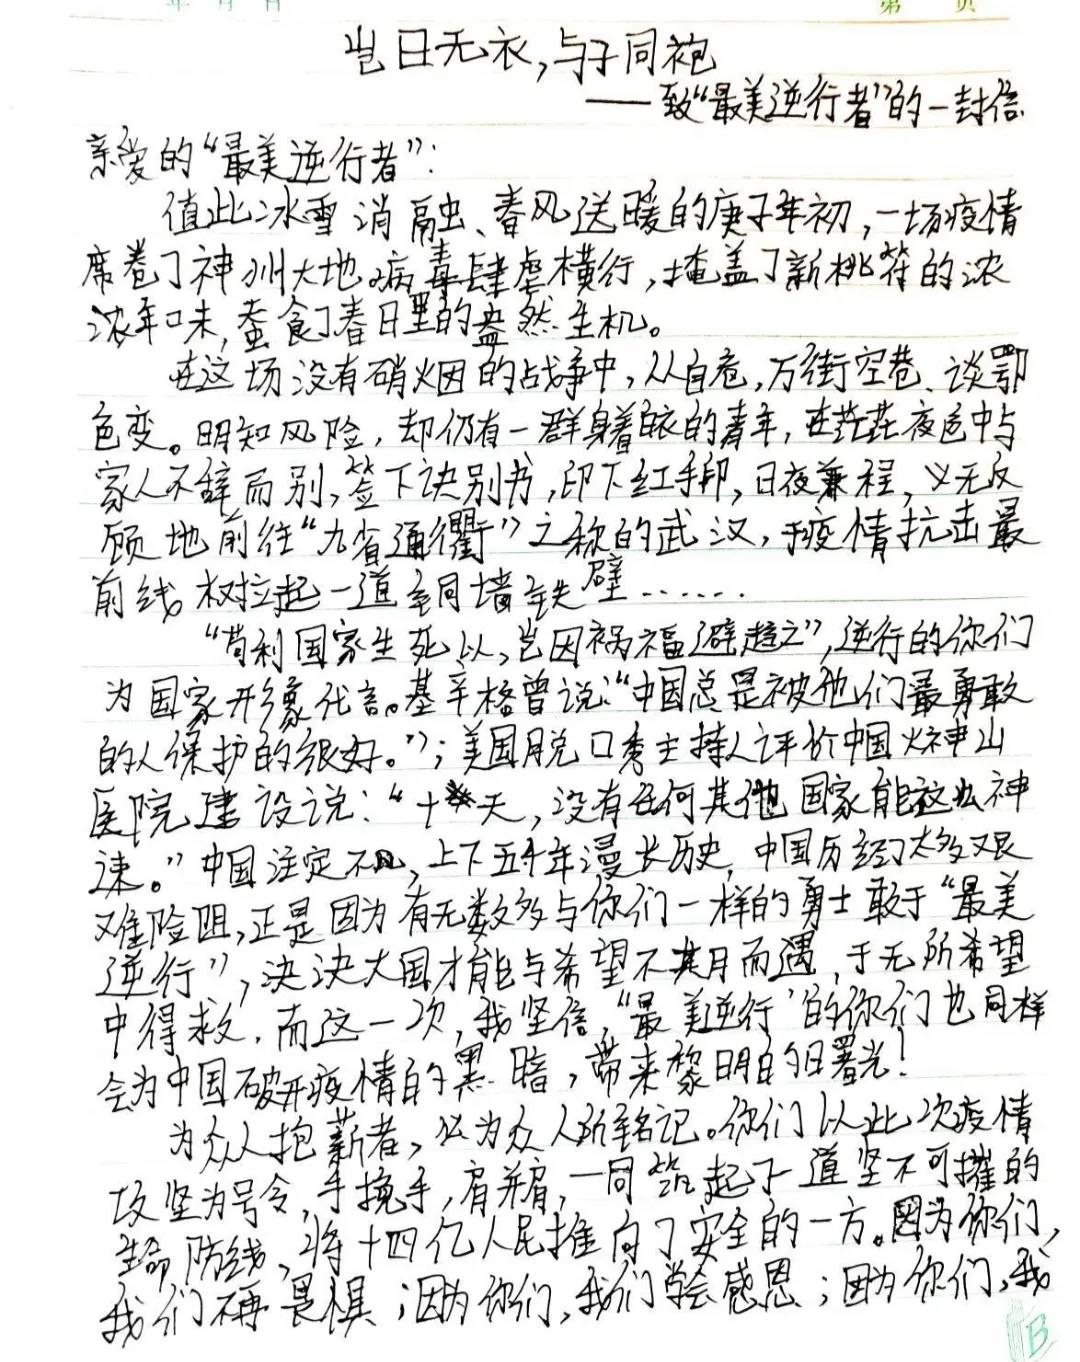 年 月 日 第 页
岂曰无衣,与子同袍
——致“最美逆行者”的一封信
亲爱的“最美逆行者”:
值此冰雪消融、春风送暖的庚子年初,一场疫情
席卷了神州大地,病毒肆虐横行,掩盖了新桃符的浓
浓年味,蚕食了春日里的盎然生机。
在这场没有硝烟的战争中,人人自危,万街空巷、谈鄂
色变。明知风险,却仍有一群身着白衣的青年,在茫茫夜色中与
家人不辞而别,签下诀别书,印下红手印,日夜兼程,义无反
顾地前往“九省通衢”之称的武汉,于疫情抗击最
前线树拉起一道铜墙铁壁……
“苟利国家生死以,岂因祸福避趋之”,逆行的你们
为国家形象代言。基辛格曾说:“中国总是被他们最勇敢
的人保护的很好。”;美国脱口秀主持人评价中国火神山
医院建设说:“十天,没有任何其他国家能这么神
速。”中国注定不凡,上下五千年漫长历史,中国历经了太多艰
难险阻,正是因为有无数多与你们一样的勇士敢于“最美
逆行”,泱泱大国才能与希望不期而遇,于无所希望
中得救,而这一次,我坚信,“最美逆行”的你们也同样
会为中国破开疫情的黑暗,带来黎明的曙光!
为众人抱薪者,必为众人所铭记。你们以此次疫情
攻坚为号令,手挽手,肩并肩,一同筑起了一道坚不可摧的
生命防线,将十四亿人民推向了安全的一方。因为你们,
我们不再畏惧;因为你们,我们学会感恩;因为你们,我
B